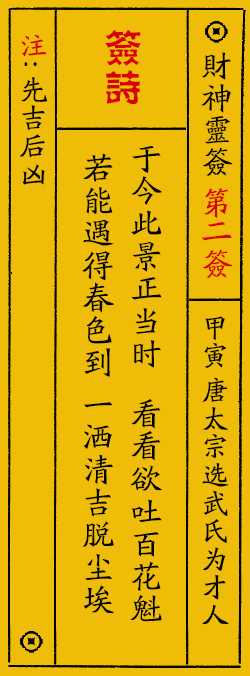 財神靈簽 第二簽
甲寅 唐太宗选武氏为才人
簽詩
于今此景正当时 看看欲吐百花魁
若能遇得春色到 一洒清吉脱尘埃
注:先吉后凶